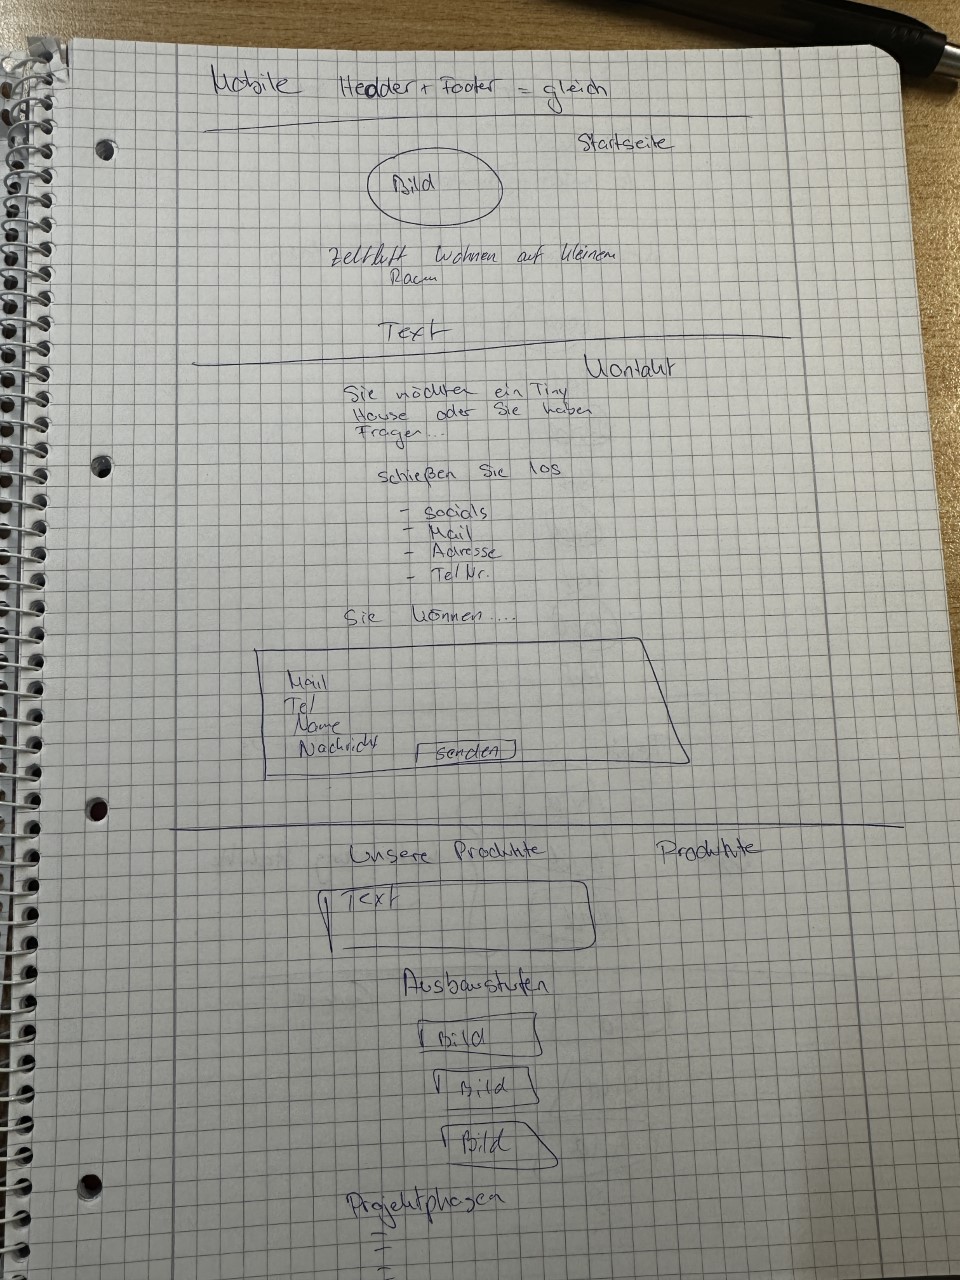 Mobile Hedder + Footer = gleich
Startseite
Bild
Wohnen auf kleinem
Raum
Text
Kontakt
Sie möchten ein Tiny
House oder Sie haben
Fragen...
schießen Sie los
- Socials
- Mail
- Adresse
- Tel Nr.
Sie können....
Mail
Tel
Name
Nachricht
senden
Unsere Produkte
Produkte
Text
Ausbaustufen
Bild
Bild
Bild
Projektphasen
-
-
-